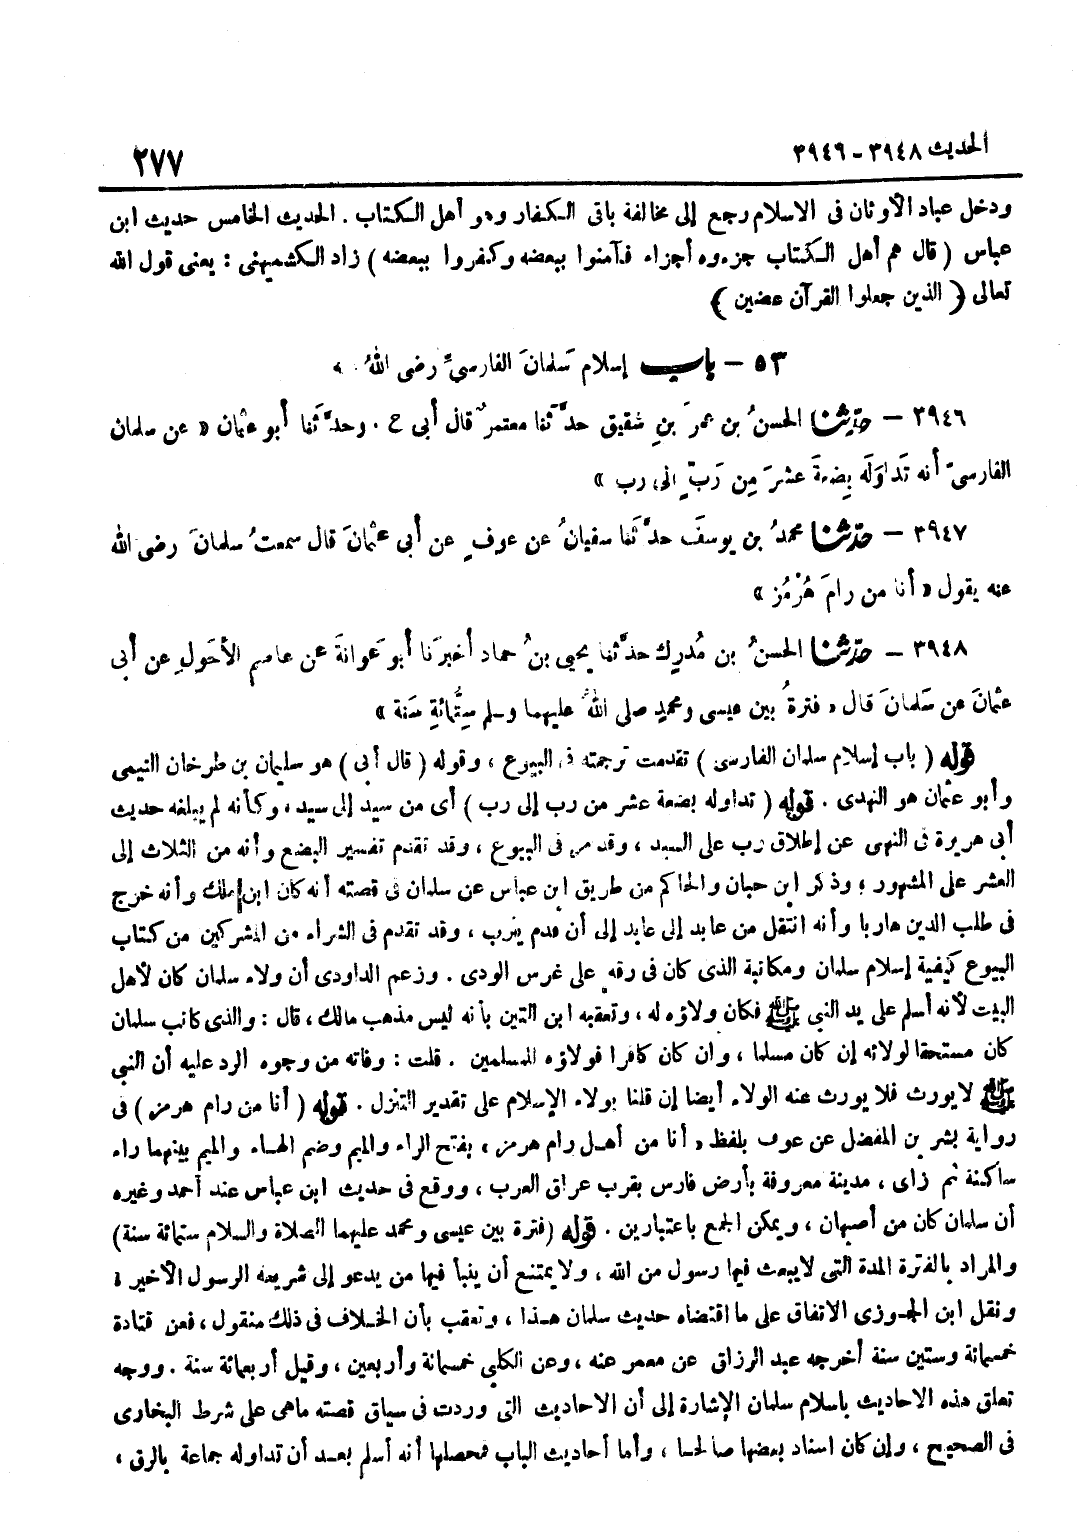 الحديث ٣٩٤٨ - ٣٩٤٦
٢٧٧
ودخل عباد الأوثان فى الاسلام رجع إلى مخالفة باقى الكفار وهو أهل الكتاب . الحديث الخامس حديث ابن
عباس ( قال هم أهل الكتاب جزءوه أجزاء فآمنوا ببعضه وكفروا ببعضه ) زاد الكشميهنى : يعنى قول الله
تعالى ﴿ الذين جعلوا القرآن عضين ﴾
٥٣ - باب إسلام سَلمانَ الفارسىِّ رضى اللهُ
٣٩٤٦ - حدّثنا الحسنُ بن عمرَ بنِ شقيق حدَّثنا معتمرٌ قال أبى ح . وحدَّثنا أبو عثمان « عن سلمان
الفارسىّ أنه تَداوَلَه بِضعةَ عشرَ مِن رَبّ الى رب »
٣٩٤٧ - حدّثنا محمدُ بن يوسفَ حدَّثنا سفيانُ عن عوفٍ عن أبى عثمانَ قال سمعتُ سلمانَ رضى الله
عنه يقول « أنا من رامَ هُرْمُز »
٣٩٤٨ - حدّثنا الحسنُ بن مُدرِك حدثنا يحيى بنُ حماد أخبرَنا أبو عَوانةَ عن عاصم الأحَولِ عن أبى
عثمانَ عن سَلمانَ قال « فترةُ بين عيسى ومحمدٍ صلى اللهُ عليهما وسلم سِتُّمائةِ سَنة »
قوله ( باب إسلام سلمان الفارسى ) تقدمت ترجمته فى البيوع ، وقوله ( قال أبى ) هو سليمان بن طرخان التيمى
وأبو عثمان هو النهدى . قوله ( تداوله بضعة عشر من رب إلى رب ) أى من سيد إلى سيد ، وكأنه لم يبلغه حديث
أبى هريرة فى النهى عن إطلاق رب على السيد ، وقد مر فى البيوع ، وقد تقدم تفسير البضع وأنه من الثلاث إلى
العشر على المشهور ؛ وذكر ابن حبان والحاكم من طريق ابن عباس عن سلمان فى قصته أنه كان ابن ملك وأنه خرج
فى طلب الدين هاربا وأنه انتقل من عابد إلى عابد إلى أن قدم يثرب ، وقد تقدم فى الشراء من المشركين من كتاب
البيوع كيفية إسلام سلمان ومكاتبة الذى كان فى رقه على غرس الودى . وزعم الداودى أن ولاء سلمان كان لأهل
البيت لأنه أسلم على يد النبى ﷺ فكان ولاؤه له ، وتعقبه ابن التين بأنه ليس مذهب مالك ، قال : والذى كاتب سلمان
كان مستحقا لولائه إن كان مسلما ، وان كان كافرا فولاؤه للمسلمين . قلت : وفاته من وجوه الرد عليه أن النبى
ﷺ لا يورث فلا يورث عنه الولاء أيضا إن قلنا بولاء الإسلام على تقدير التنزل . قوله ( أنا من رام هرمز ) فى
رواية بشر بن المفضل عن عوف بلفظ « أنا من أهل رام هرمز ، بفتح الراء والميم وضم الهاء والميم بينهما راء
ساكنة ثم زاى ، مدينة معروفة بأرض فارس بقرب عراق العرب ، ووقع فى حديث ابن عباس عند أحمد وغيره
أن سلمان كان من أصبهان ، ويمكن الجمع باعتبارين . قوله (فترة بين عيسى ومحمد عليهما الصلاة والسلام ستمائة سنة)
والمراد بالفترة المدة التى لا يبعث فيها رسول من الله ، ولا يمتنع أن ينبأ فيها من يدعو إلى شريعة الرسول الأخير ؛
ونقل ابن الجوزى الاتفاق على ما اقتضاه حديث سلمان هذا ، وتعقب بأن الخلاف فى ذلك منقول ، فعن قتادة
خمسمائة وستين سنة أخرجه عبد الرزاق عن معمر عنه ، وعن الكلبى خمسمائة وأربعين ، وقيل أربعمائة سنة . ووجه
تعلق هذه الاحاديث باسلام سلمان الإشارة إلى أن الاحاديث التى وردت فى سياق قصته ماهى على شرط البخارى
فى الصحيح ، وإن كان اسناد بعضها صالحا ، وأما أحاديث الباب فمحصلها أنه أسلم بعد أن تداوله جماعة بالرق ،